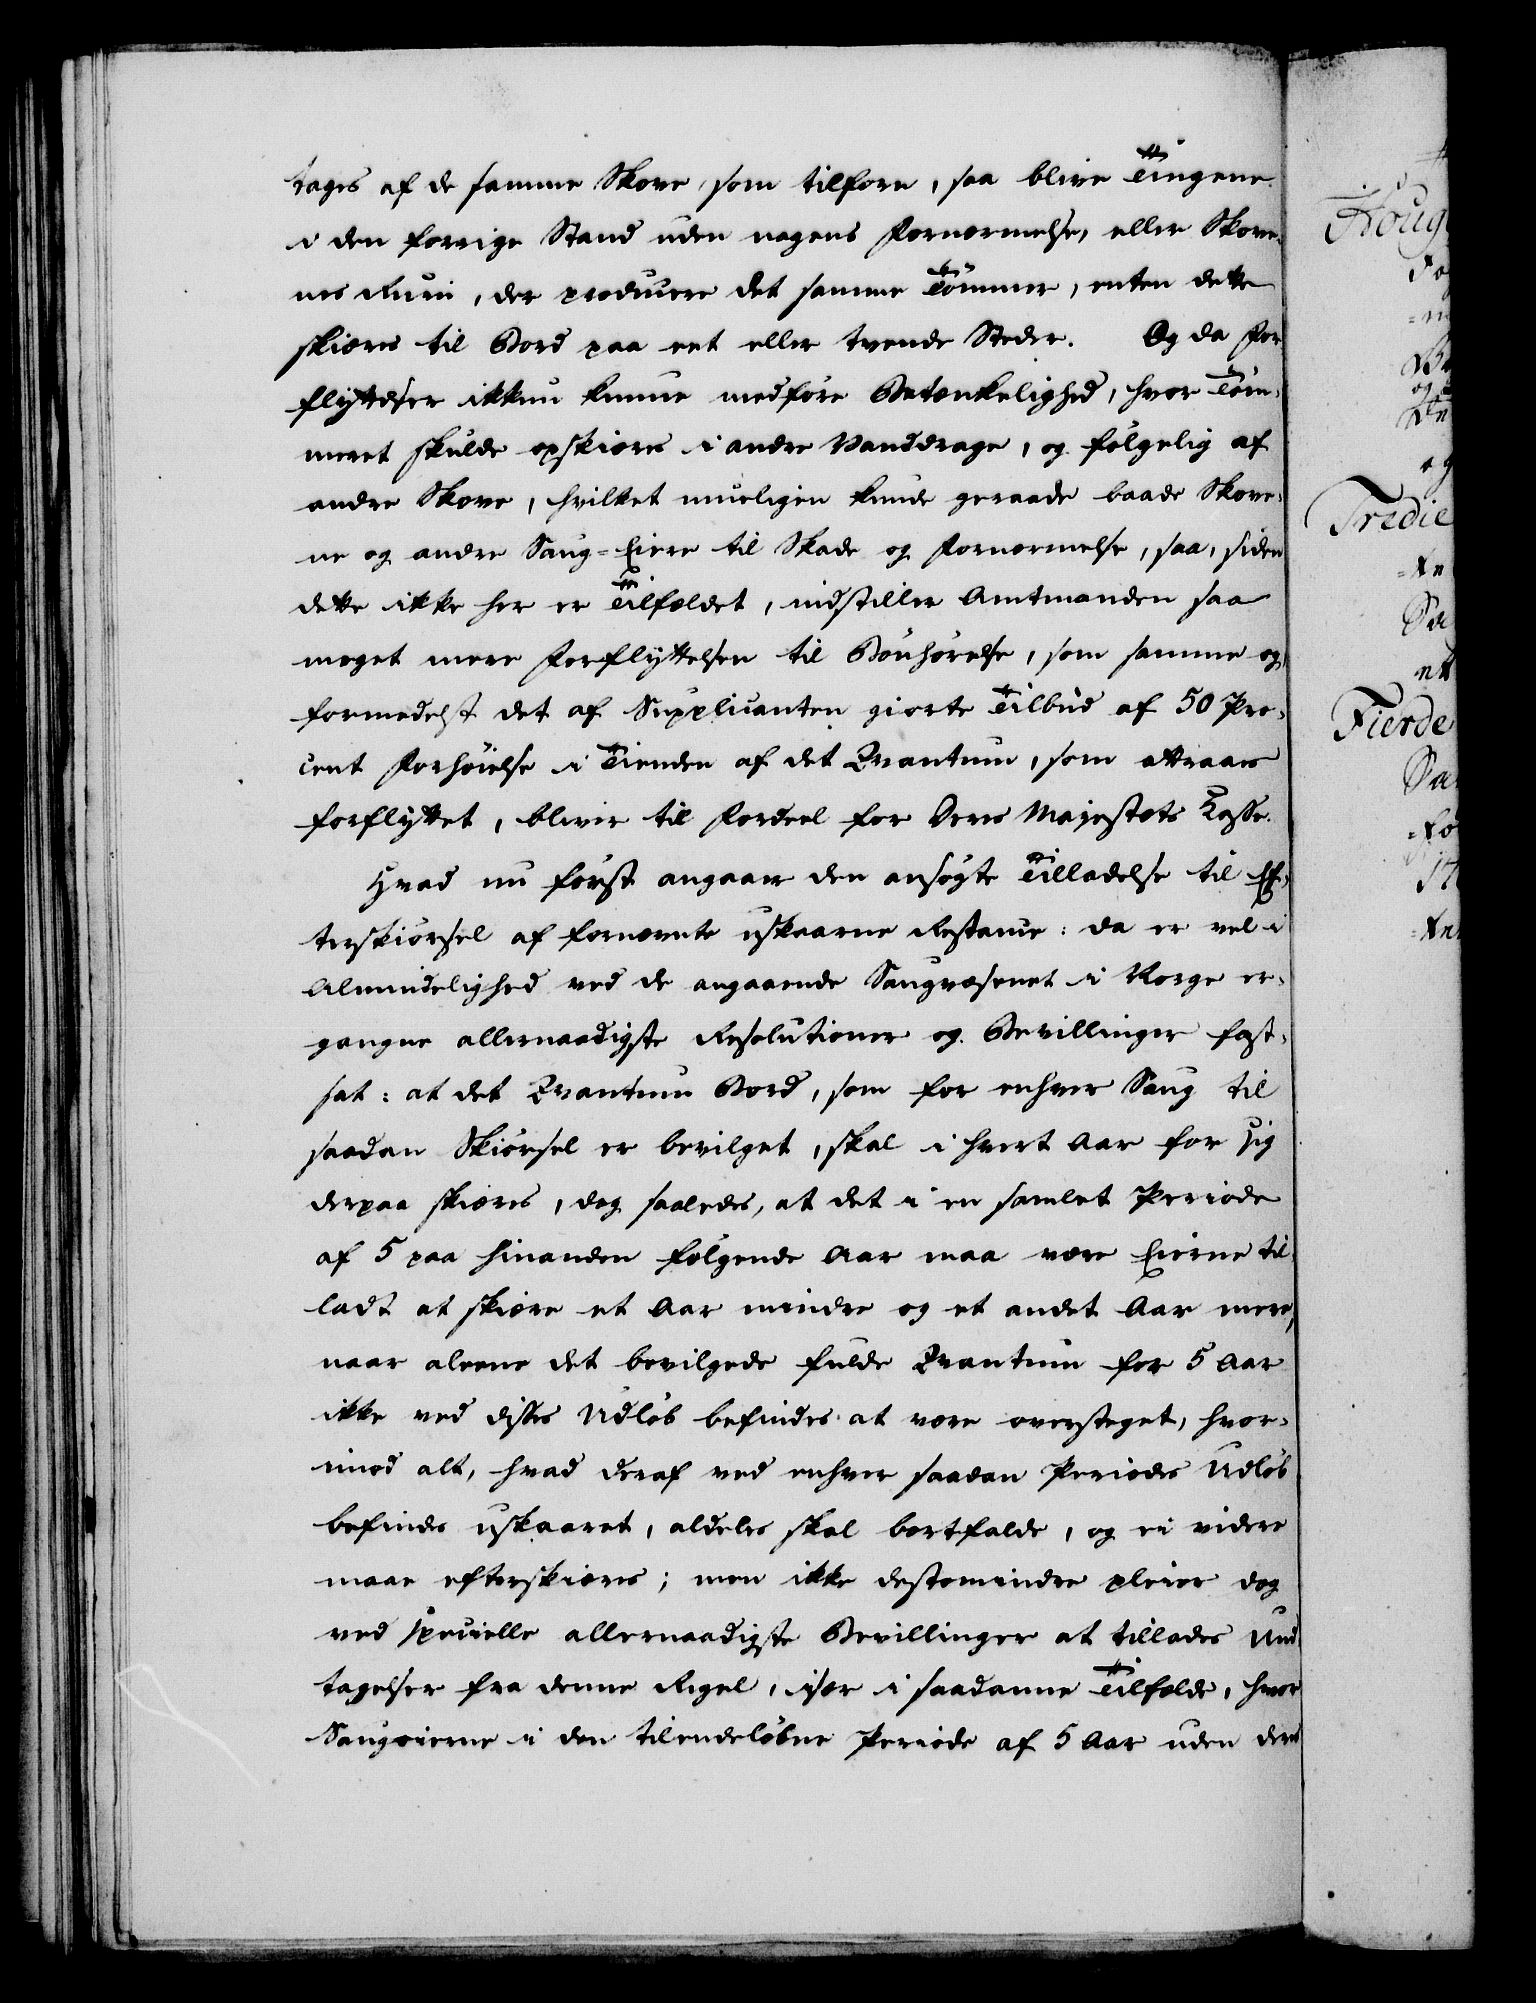 tages af de samme Skove, som tilforn, saa blive Tingene
i den forrige Stand uden nogens Fornærmelse, eller Skove-
nes Ruin, der producere det samme Tömmer, enten dette
skiæres til Bord paa eet eller tvende Steder. Og da For
flyttelser ikkun kunne medføre Betænkelighed, hvor Töm-
meret skulde opskiæres i andre Vanddrage, og følgelig af
andre Skove, hvilket mueligen kunde geraade baade Skove-
ne og andre Saug-Eiere til Skade og Fornærmelse, saa, siden
dette ikke her er Tilfældet, indstiller Amtmanden saa
meget mere Forflyttelsen til Bönhørelse, som samme og,
formedelst det af Supplicanten giorte Tilbud af 50 Pro-
cent Forhöielse i Tienden af det Qvantum, som attraaes
forflyttet, bliver til Fordeel for Deres Majestæts Casse.
Hvad nu først angaaer den ansøgte Tilladelse til Ef-
terskiørsel af fornævnte uskaarne Restance: da er vel i
Almindelighed ved de angaaende Saugvæsenet i Norge er-
gangne allernaadigste Resolutioner og Bevillinger fast-
sat: at det Qvantum Bord, som for enhver Saug til
saadan Skiørsel er bevilget, skal i hvert Aar for sig
derpaa skiæres, dog saaledes, at det i en samlet Periode
af 5 paa hinanden følgende Aar maa være Eierne til-
ladt at skiære et Aar mindre og et andet Aar mere,
naar aleene det bevilgede fulde Qvantum for 5 Aar
ikke ved disses Udløb befindes at være oversteget, hvor-
imod alt, hvad deraf ved enhver saadan Periodes Udløb
befindes uskaaret, aldeles skal bortfalde, og ei videre
maae efterskiæres; men ikke destomindre pleier dog
ved specielle allernaadigste Bevillinger at tillades Und-
tagelser fra denne Regel, især i saadanne Tilfælde, hvor
Saugeierne i den tilendeløbne Periode af 5 Aar uden deres
Houg
Tredie
Fierde